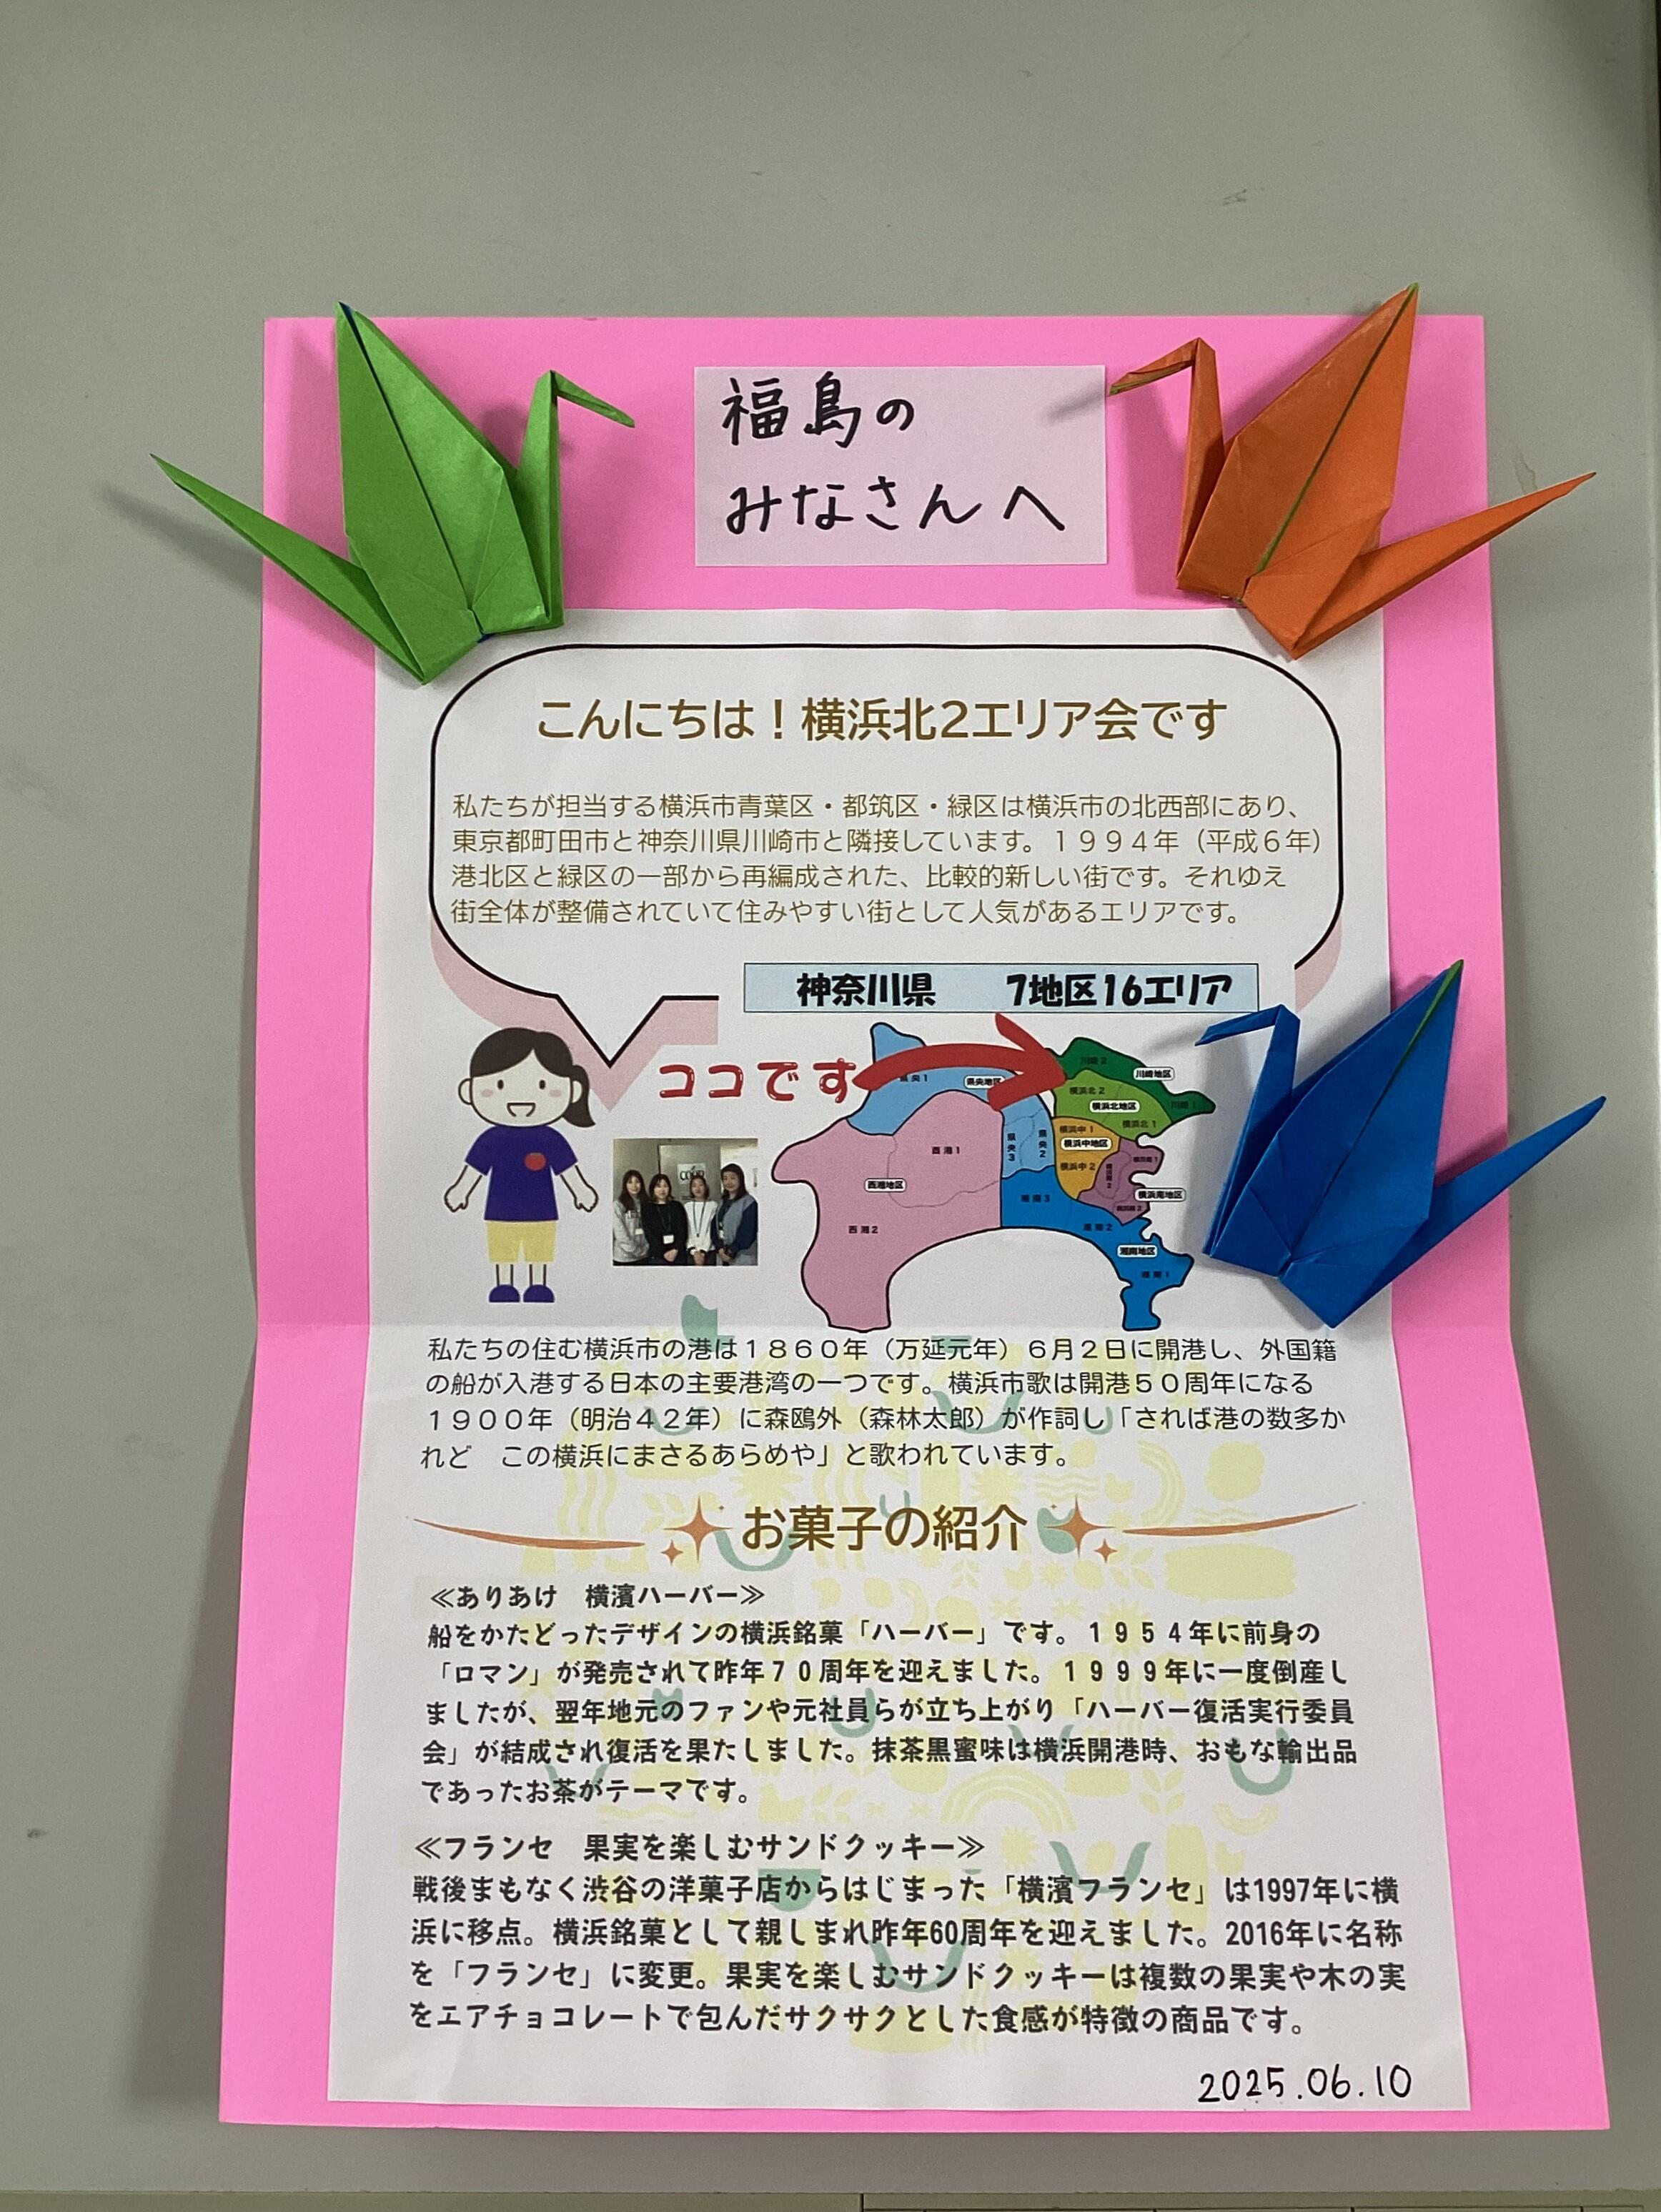 福島の
みなさんへ
こんにちは！横浜北2エリア会です
私たちが担当する横浜市青葉区・都筑区・緑区は横浜市の北西部にあり、
東京都町田市と神奈川県川崎市と隣接しています。１９９４年（平成６年）
港北区と緑区の一部から再編成された、比較的新しい街です。それゆえ
街全体が整備されていて住みやすい街として人気があるエリアです。
神奈川県　　7地区16エリア
ココです
県央1
県央地区
川崎2
川崎地区
横浜北2
横浜北地区
川崎1
横浜北1
横浜中1
横浜中地区
横浜中2
県央3
県央2
西湘1
西湘地区
西湘2
湘南3
横浜南地区
湘南2
湘南地区
湘南1
私たちの住む横浜市の港は１８６０年（万延元年）６月２日に開港し、外国籍
の船が入港する日本の主要港湾の一つです。横浜市歌は開港５０周年になる
１９００年（明治４２年）に森鴎外（森林太郎）が作詞し「されば港の数多か
れど　この横浜にまさるあらめや」と歌われています。
お菓子の紹介
≪ありあけ　横濱ハーバー≫
船をかたどったデザインの横浜銘菓「ハーバー」です。１９５４年に前身の
「ロマン」が発売されて昨年７０周年を迎えました。１９９９年に一度倒産し
ましたが、翌年地元のファンや元社員らが立ち上がり「ハーバー復活実行委員
会」が結成され復活を果たしました。抹茶黒蜜味は横浜開港時、おもな輸出品
であったお茶がテーマです。
≪フランセ　果実を楽しむサンドクッキー≫
戦後まもなく渋谷の洋菓子店からはじまった「横濱フランセ」は1997年に横
浜に移点。横浜銘菓として親しまれ昨年60周年を迎えました。2016年に名称
を「フランセ」に変更。果実を楽しむサンドクッキーは複数の果実や木の実
をエアチョコレートで包んだサクサクとした食感が特徴の商品です。
2025.06.10